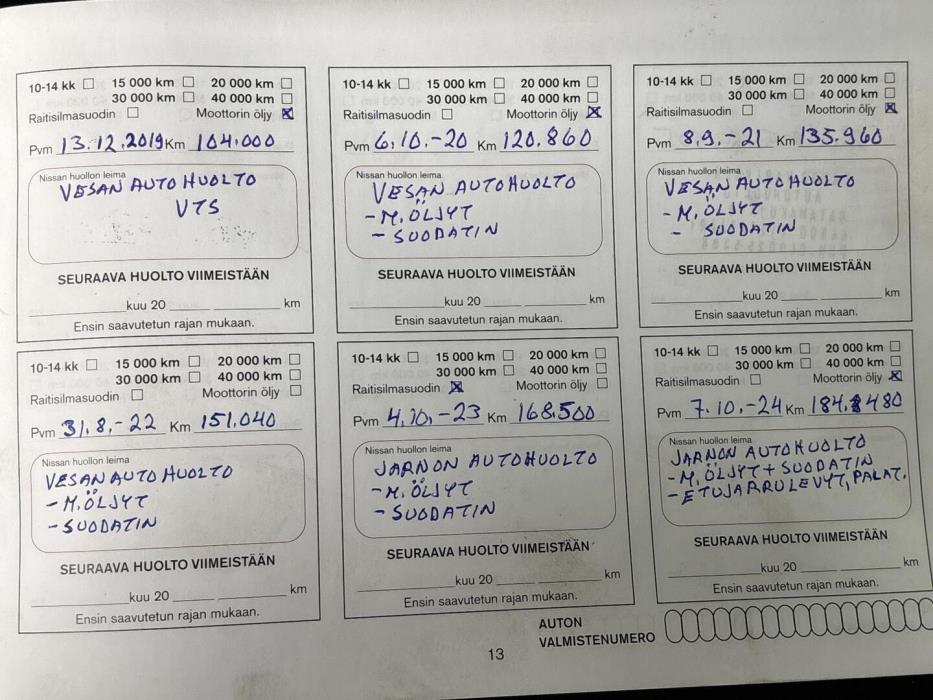 10-14 kk ☐ 15 000 km ☐ 20 000 km ☐
30 000 km ☐ 40 000 km ☐
Raitisilmasuodin ☐ Moottorin öljy ☒
Pvm 13.12.2019 Km 104.000
Nissan huollon leima
VESAN AUTOHUOLTO
VTS
SEURAAVA HUOLTO VIIMEISTÄÄN
kuu 20 km
Ensin saavutetun rajan mukaan.
10-14 kk ☐ 15 000 km ☐ 20 000 km ☐
30 000 km ☐ 40 000 km ☐
Raitisilmasuodin ☐ Moottorin öljy ☒
Pvm 6.10.-20 Km 120.860
Nissan huollon leima
VESAN AUTOHUOLTO
- M.ÖLJYT
- SUODATIN
SEURAAVA HUOLTO VIIMEISTÄÄN
kuu 20 km
Ensin saavutetun rajan mukaan.
10-14 kk ☐ 15 000 km ☐ 20 000 km ☐
30 000 km ☐ 40 000 km ☐
Raitisilmasuodin ☐ Moottorin öljy ☒
Pvm 8.9.-21 Km 135.960
Nissan huollon leima
VESAN AUTOHUOLTO
- M.ÖLJYT
- SUODATIN
SEURAAVA HUOLTO VIIMEISTÄÄN
kuu 20 km
Ensin saavutetun rajan mukaan.
10-14 kk ☐ 15 000 km ☐ 20 000 km ☐
30 000 km ☐ 40 000 km ☐
Raitisilmasuodin ☐ Moottorin öljy ☐
Pvm 31.8.-22 Km 151.040
Nissan huollon leima
VESAN AUTOHUOLTO
- M.ÖLJYT
- SUODATIN
SEURAAVA HUOLTO VIIMEISTÄÄN
kuu 20 km
Ensin saavutetun rajan mukaan.
10-14 kk ☐ 15 000 km ☐ 20 000 km ☐
30 000 km ☐ 40 000 km ☐
Raitisilmasuodin ☒ Moottorin öljy ☐
Pvm 4.10.-23 Km 168.500
Nissan huollon leima
JARNON AUTOHUOLTO
- M.ÖLJYT
- SUODATIN
SEURAAVA HUOLTO VIIMEISTÄÄN
kuu 20 km
Ensin saavutetun rajan mukaan.
10-14 kk ☐ 15 000 km ☐ 20 000 km ☐
30 000 km ☐ 40 000 km ☐
Raitisilmasuodin ☐ Moottorin öljy ☒
Pvm 7.10.-24 Km 184.480
Nissan huollon leima
JARNON AUTOHUOLTO
- M.ÖLJYT + SUODATIN
- ETUJARRULEVYT, PALAT.
SEURAAVA HUOLTO VIIMEISTÄÄN
kuu 20 km
Ensin saavutetun rajan mukaan.
AUTON
VALMISTENUMERO
13